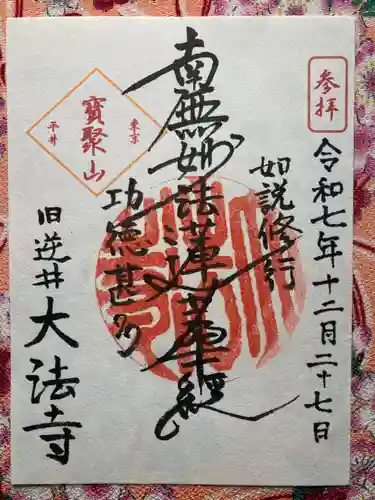 参拝
令和七年十二月二十七日
如説修行
南無妙法蓮華経
功徳甚多
東京
寶聚山
平井
旧逆井
大法寺